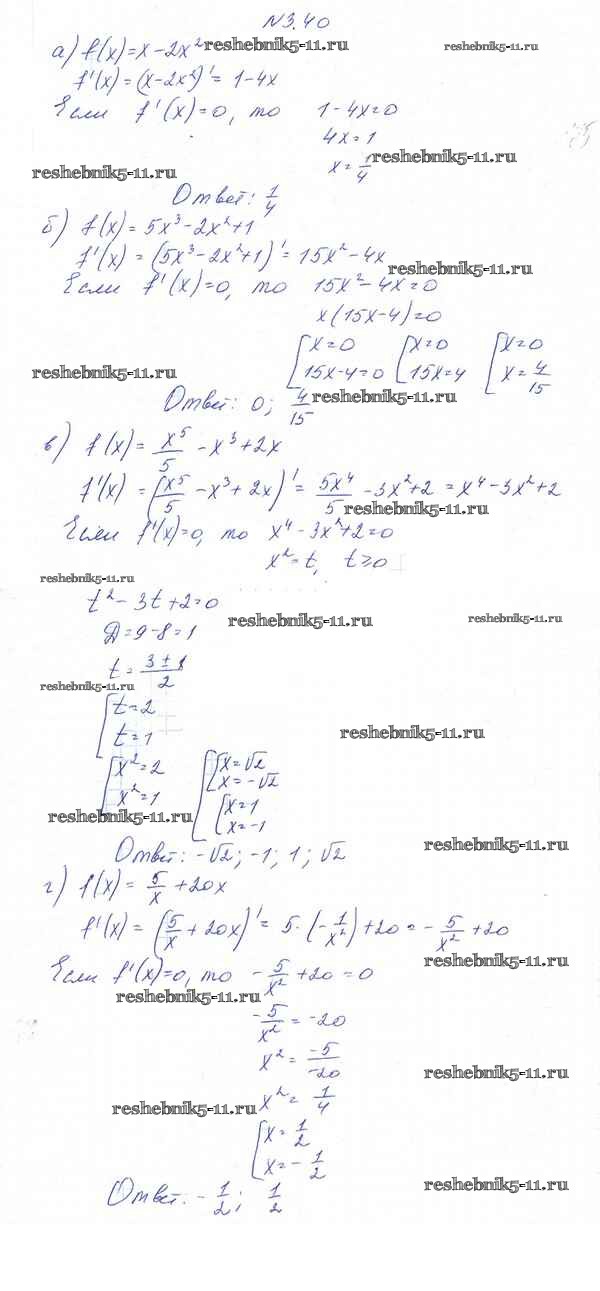 N 3.40
а) f(x) = x - 2x² reshebnik5-11.ru reshebnik5-11.ru
f'(x) = (x - 2x²)' = 1 - 4x
Если f'(x) = 0, то 1 - 4x = 0
4x = 1
reshebnik5-11.ru x = 1/4 reshebnik5-11.ru
Ответ: 1/4
б) f(x) = 5x³ - 2x² + 1
f'(x) = (5x³ - 2x² + 1)' = 15x² - 4x reshebnik5-11.ru
Если f'(x) = 0, то 15x² - 4x = 0
x(15x - 4) = 0
[x = 0 [x = 0 [x = 0
reshebnik5-11.ru 15x - 4 = 0 15x = 4 x = 4/15
Ответ: 0; 4/15 reshebnik5-11.ru
в) f(x) = x⁵/5 - x³ + 2x
f'(x) = (x⁵/5 - x³ + 2x)' = 5x⁴/5 - 3x² + 2 = x⁴ - 3x² + 2
reshebnik5-11.ru
Если f'(x) = 0, то x⁴ - 3x² + 2 = 0
x² = t, t ≥ 0
reshebnik5-11.ru
t² - 3t + 2 = 0
Д = 9 - 8 = 1 reshebnik5-11.ru reshebnik5-11.ru
t = (3 ± 1)/2
reshebnik5-11.ru
[t = 2
t = 1 reshebnik5-11.ru
[x² = 2 [[x = √2
x = -√2
x² = 1 [x = 1
reshebnik5-11.ru x = -1
Ответ: -√2; -1; 1; √2 reshebnik5-11.ru
г) f(x) = 5/x + 20x
f'(x) = (5/x + 20x)' = 5·(-1/x²) + 20 = -5/x² + 20
reshebnik5-11.ru
Если f'(x) = 0, то -5/x² + 20 = 0
reshebnik5-11.ru
-5/x² = -20
x² = -5/-20 reshebnik5-11.ru
reshebnik5-11.ru x² = 1/4
[x = 1/2
x = -1/2
Ответ: -1/2; 1/2 reshebnik5-11.ru